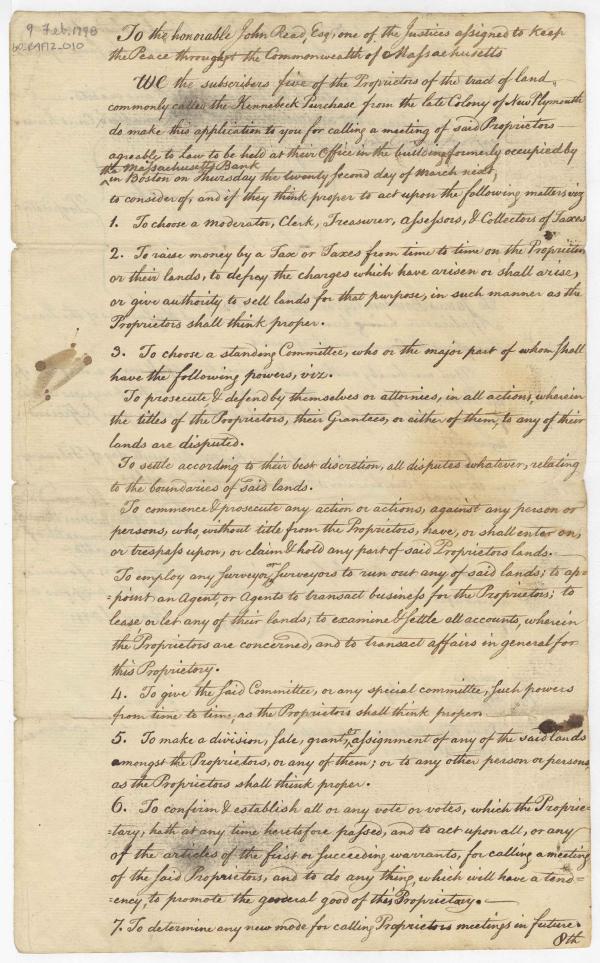 9 Feb. 1798
b2.R4F12_010
To the honorable John Read, Esq, one of the Justices assigned to keep
the Peace throughout the Commonwealth of Massachusetts
We the subscribers five of the Proprietors of the tract of land
commonly called the Kennebeck Purchase from the late Colony of New Plymouth
do make this application to you for calling a meeting of said Proprietors
agreable to Law to be held at their Office in the building formerly occupied by
the Massachusetts Bank
in Boston on Thursday the twenty second day of March next,
to consider of, and if they think proper to act upon the following matters viz
1. To choose a Moderator, Clerk, Treasurer, Assessors, & Collectors of Taxes
2. To raise money by a Tax or Taxes from time to time on the Proprietors
or their lands, to defrey the charges which have arisen or shall arise,
or give authority to sell lands for that purpose, in such manner as the
Proprietors shall think proper.
3. To choose a standing Committee, who or the major part of whom shall
have the following powers, viz.
To prosecute & defend by themselves or attornies, in all actions, wherein
the titles of the Proprietors, their Grantees, or either of them, to any of their
lands are disputed.
To settle according to their best discretion, all disputes whatever, relating
to the boundaries of said lands.
To commence & prosecute any action or actions, against any person or
persons, who, without title from the Proprietors, have, or shall enter on,
or trespass upon, or claim & hold any part of said Proprietors lands.
To employ any Surveyor or Surveyors to run out any of said lands; to ap=
=point an Agent, or Agents to transact business for the Proprietors; to
lease or let any of their lands; to examine & settle all accounts, wherein
the Proprietors are concerned, and to transact affairs in general for
this Propriety.
4. To give the said Committee, or any special committee, such powers
from time to time, as the Proprietors shall think proper.
5. To make a division, sale, grant, or assignment of any of the said lands
amongst the Proprietors, or any of them; or to any other person or persons,
as the Proprietors shall think proper.
6. To confirm & establish all or any vote or votes, which the Proprie=
=tary, hath at any time heretofore passed, and to act upon all, or any
of the articles of the first or succeeding warrants, for calling a meeting
of the said Proprietors, and to do any thing, which will have a tend=
=ency, to promote the general good of this Proprietary.
7. To determine any new mode for calling Proprietors meetings in future.
8th